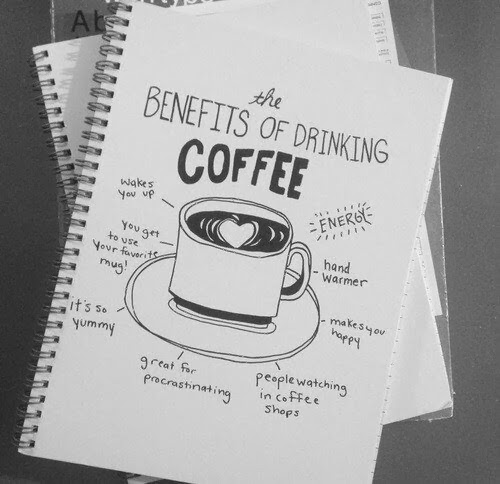 the
BENEFITS OF DRINKING
COFFEE
wakes
you up
ENERGY
you get
to use
your favorite
mug!
hand
warmer
it's so
yummy
makes you
happy
great for
procrastinating
people watching
in coffee
shops